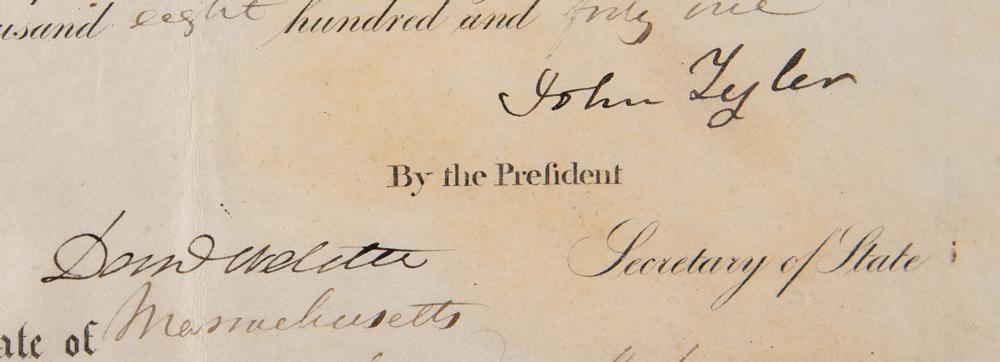 usand eight hundred and forty one
John Tyler
By the Preſident
Danl Webster
Secretary of State
Massachusetts
ate of